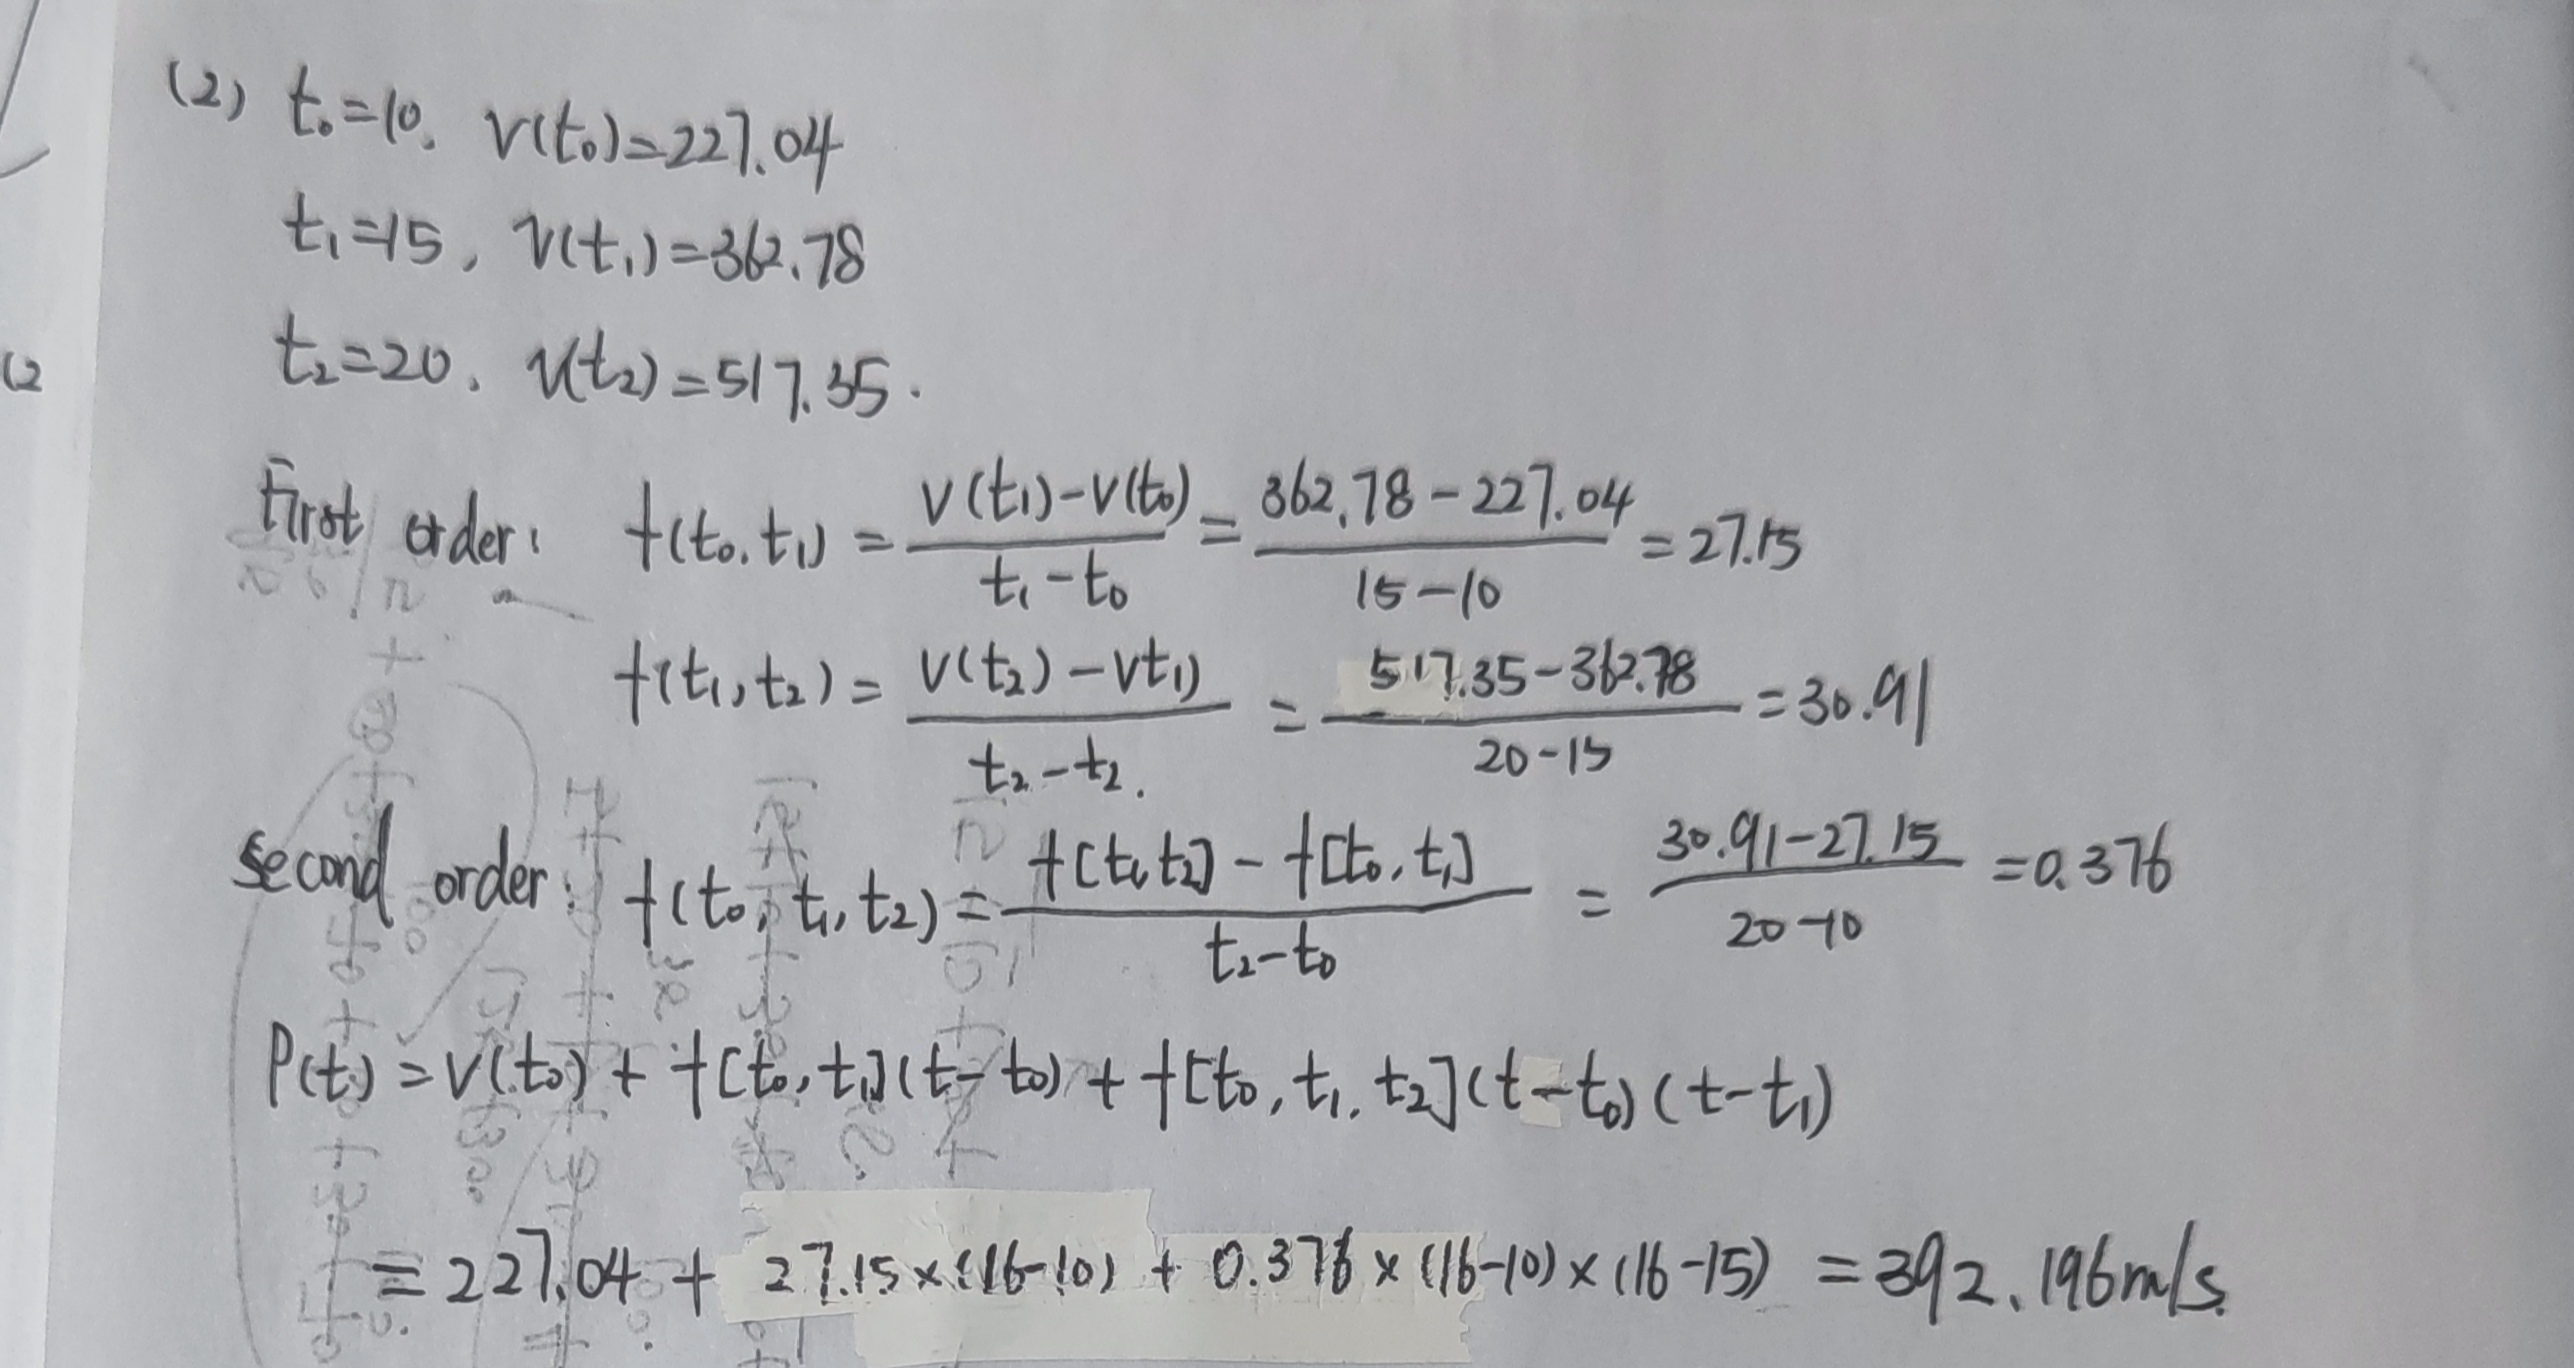 (2) t₀=10. v(t₀)=227.04
t₁=15, v(t₁)=362.78
t₂=20. v(t₂)=517.35.
First order: f(t₀.t₁) = (v(t₁)-v(t₀))/(t₁-t₀) = (362.78-227.04)/(15-10) = 27.15
f(t₁,t₂) = (v(t₂)-vt₁))/(t₂-t₂.) = (517.35-362.78)/(20-15) = 30.91
Second order: f(t₀,t₁,t₂) = (f[t₁,t₂]-f[t₀,t₁])/(t₂-t₀) = (30.91-27.15)/(20-10) = 0.376
P(t) = v(t₀) + f[t₀,t₁](t-t₀) + f[t₀,t₁,t₂](t-t₀)(t-t₁)
= 227.04 + 27.15×(16-10) + 0.376×(16-10)×(16-15) = 392.196m/s.